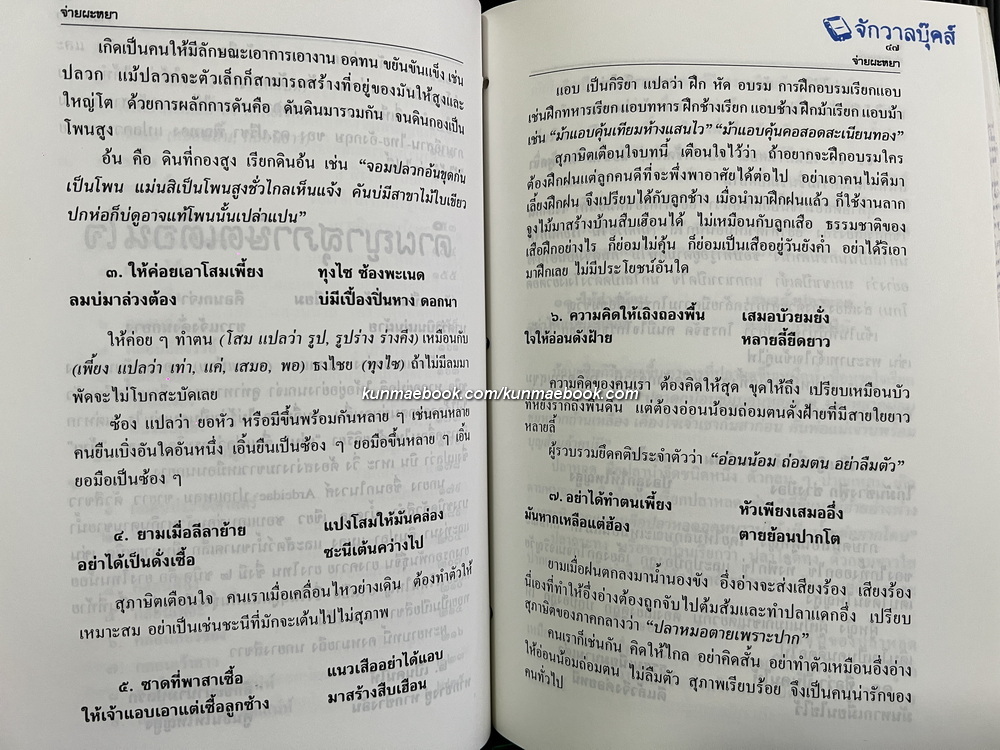 จ่ายผะหยา
เกิดเป็นคนให้มีลักษณะเอาการเอางาน อดทน ขยันขันแข็ง เช่น
ปลวก แม้ปลวกจะตัวเล็กก็สามารถสร้างที่อยู่ของมันให้สูงและ
ใหญ่โต ด้วยการผลักการดันคือ ดันดินมารวมกัน จนดินกองเป็น
โพนสูง
อ้น คือ ดินที่กองสูง เรียกดินอ้น เช่น “จอมปลวกอ้นขุดก่น
เป็นโพน แม่นสิเป็นโพนสูงชั่วไกลเห็นแจ้ง คันบ่มีสาขาไม้ใบเขียว
ปกห่อก็บ่ดูอาจแท้โพนนั้นเปล่าแปน”
๓. ให้ค่อยเอาโสมเพี้ยง ทุงไซ ซ้องพะเนด
ลมบ่มาล่วงต้อง บ่มีเปื้องปิ่นหาง ดอกนา
ให้ค่อย ๆ ทำตน (โสม แปลว่า รูป, รูปร่าง ร่างคิง) เหมือนกับ
(เพี้ยง แปลว่า เท่า, แค่, เสมอ, พอ) ธงไชย (ทุงไซ) ถ้าไม่มีลมมา
พัดจะไม่โบกสะบัดเลย
ซ้อง แปลว่า ยอหัว หรือมีขึ้นพร้อมกันหลาย ๆ เช่นคนหลาย
คนยืนเบิ่งอันใดอันหนึ่ง เอิ้นยืนเป็นซ้อง ๆ ยอมือขึ้นหลาย ๆ เอิ้น
ยอมือเป็นซ้อง ๆ
๔. ยามเมื่อลีลาย้าย แปงโสมให้มันคล่อง
อย่าได้เป็นดั่งเซื้อ ชะนีเต้นคว่างไป
สุภาษิตเตือนใจ คนเราเมื่อเคลื่อนไหวย่างเดิน ต้องทำตัวให้
เหมาะสม อย่าเป็นเช่นชะนีที่มักจะเต้นไปไม่สุภาพ
๕. ซาดที่พาสาเซื้อ แนวเสืออย่าได้แอบ
ให้เจ้าแอบเอาแต่เซื้อลูกช้าง มาสร้างสืบเฮือน
จักวาลบุ๊คส์
๔๗
จ่ายผะหยา
แอบ เป็นกิริยา แปลว่า ฝึก หัด อบรม การฝึกอบรมเรียกแอบ
เช่นฝึกทหารเรียก แอบทหาร ฝึกช้างเรียก แอบช้าง ฝึกม้าเรียก แอบม้า
เช่น “ม้าแอบคุ้นเทียมห้างแสนไว” “ม้าแอบคุ้นคอสอดสะเนียนทอง”
สุภาษิตเตือนใจบทนี้ เตือนใจไว้ว่า ถ้าอยากจะฝึกอบรมใคร
ต้องฝึกฝนแต่ลูกคนดีที่จะพึ่งพาอาศัยได้ต่อไป อย่าเอาคนไม่ดีมา
เลี้ยงฝึกฝน จึงเปรียบได้กับลูกช้าง เมื่อนำมาฝึกฝนแล้ว ก็ใช้งานลาก
จูงไม้มาสร้างบ้านสืบเฮือนได้ ไม่เหมือนกับลูกเสือ ธรรมชาติของ
เสือฝึกอย่างไร ก็ย่อมไม่คุ้น ก็ย่อมเป็นเสืออยู่วันยังค่ำ อย่าได้ริเอา
มาฝึกเลย ไม่มีประโยชน์อันใด
๖. ความคิดให้เถิงถองพื้น เสมอบัวยมยั่ง
ใจให้อ่อนดั่งฝ้าย หลายลี้ยืดยาว
kunmaebook.com/kunmaebook.com
ความคิดของคนเรา ต้องคิดให้สุด ขุดให้ถึง เปรียบเหมือนบัว
ที่หยั่งรากถึงพื้นดิน แต่ต้องอ่อนน้อมถ่อมตนดั่งฝ้ายที่มีสายใยยาว
หลายลี้
ผู้รวบรวมยึดคติประจำตัวว่า “อ่อนน้อม ถ่อมตน อย่าลืมตัว”
๗. อย่าได้ทำตนเพี้ยง หัวเพียงเสมออึ่ง
มันหากเหลือแต่ฮ้อง ตายย้อนปากโต
ยามเมื่อฝนตกลงมาน้ำนองขัง อึ่งอ่างจะส่งเสียงร้อง เสียงร้อง
นี่เองที่ทำให้อึ่งอ่างต้องถูกจับไปต้มส้มและทำปลาแดกอึ่ง เปรียบ
สุภาษิตของภาคกลางว่า “ปลาหมอตายเพราะปาก”
คนเราก็เช่นกัน คิดให้ไกล อย่าคิดสั้น อย่าทำตัวเหมือนอึ่งอ่าง
ให้อ่อนน้อมถ่อมตน ไม่ลืมตัว สุภาพเรียบร้อย จึงเป็นคนน่ารักของ
คนทั่วไป